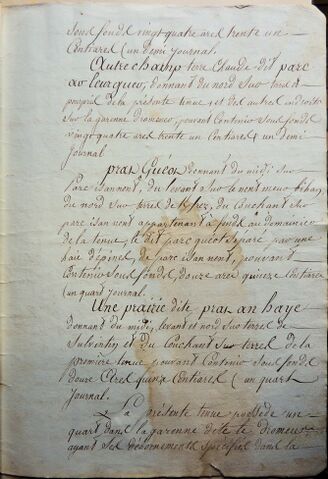 Sous fonds vingt quatre ares trente un
Centiares (un demi journal.
Autre champ terre Chaude dit parc
ar leurgueo, donnant du nord sur terres
pourpris de la présente tenue et des autres indivis
sur la garenne dromeur, pouvant Contenir Sous fonds
vingt quatre ares trente un Centiares (un Demi
journal
pras Guéot donnant du midi sur
Parc isanvent, du levant sur le vent
du nord sur terres de du Couchant sur
parc isanvent appartenant à fonds au domainier
de la tenue, le dit parc gueot séparé par une
haie d'épines, de parc isanvent, pouvant
Contenir Sous fonds, douze ares quinze Centiares
(un quart journal.
Une prairie dite pras an haye
donnant du midi, levant et nord sur terres de
Sulvintin et du Couchant Sur terres de la
première tenue pouvant Contenir Sous fonds
douze Ares quinze Centiares (un quart
Journal.
La présente tenue possède un
quart dans la garenne dite le dromeur
ayant ses débornements spécifiés dans la